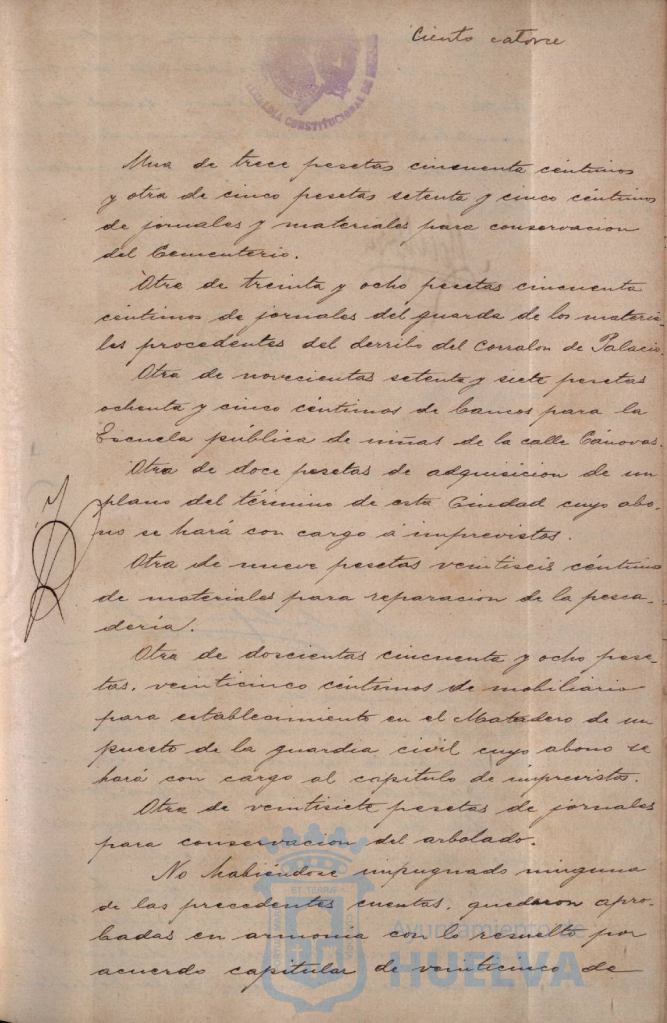 Ciento catorce
ALCALDIA CONSTITUCIONAL DE HUELVA
Una de trece pesetas cincuenta céntimos
y otra de cinco pesetas setenta y cinco céntimos
de jornales y materiales para conservacion
del Cementerio.
Otra de treinta y ocho pesetas cincuenta
céntimos de jornales del guarda de los materia-
les procedentes del derribo del Corralon de Palacio.
Otra de novecientas setenta y siete pesetas
ochenta y cinco céntimos de bancos para la
Escuela pública de niñas de la calle Cánovas.
Otra de doce pesetas de adquisicion de un
plano del término de esta Ciudad cuyo abo-
no se hará con cargo á imprevistos.
Otra de nueve pesetas veintiseis céntimos
de materiales para reparacion de la pesca-
dería.
Otra de doscientas cincuenta y ocho pese-
tas, veinticinco céntimos de mobiliario
para establecimiento en el Matadero de un
puesto de la guardia civil cuyo abono se
hará con cargo al capitulo de imprevistos.
Otra de veintisiete pesetas de jornales
para conservacion del arbolado.
No habiéndose impugnado ninguna
de las precedentes cuentas, quedaron apro-
badas en armonia con lo resuelto por
acuerdo capitular de veinticinco de
Ayuntamiento de
HUELVA